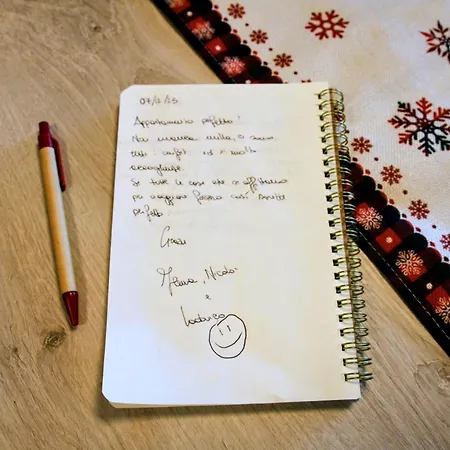 07/2/25
Appartamento perfetto!
Non manca nulla, ci sono
tutti i confort ed è molto
accogliente.
Se tutte le case che si affittano
per viaggiare fossero così sarebbe
perfetto.
Grazie
Nicolò
e
Lodovico